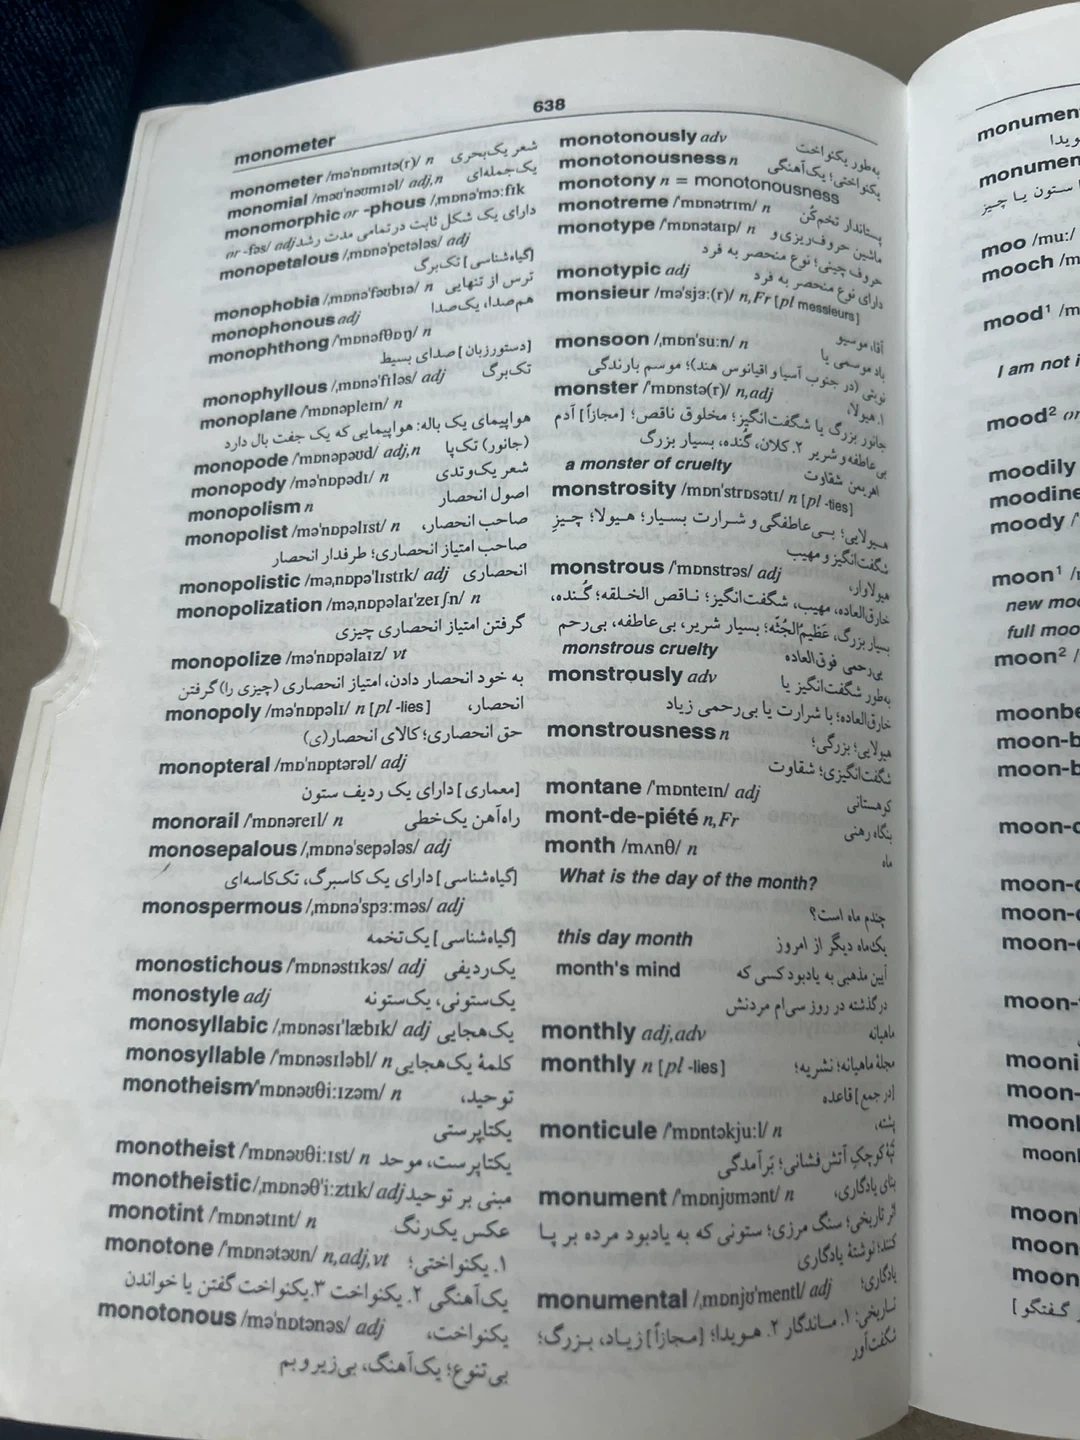 638
monometer
monometer /məˈnɒmɪtə(r)/ n شعر یک‌بحری
monomial /məʊˈnəʊmɪəl/ adj,n یک‌جمله‌ای
monomorphic or -phous /ˌmɒnəˈmɔːfɪk
or -fəs/ adj دارای یک شکل ثابت در تمامی مدت رشد
monopetalous /ˌmɒnəˈpetələs/ adj
[گیاه‌شناسی] تک‌برگ
monophobia /ˌmɒnəˈfəʊbɪə/ n ترس از تنهایی
monophonous adj هم‌صدا، یک‌صدا
monophthong /ˈmɒnəfθɒŋ/ n
[دستور زبان] صدای بسیط
monophyllous /ˌmɒnəˈfɪləs/ adj تک‌برگ
monoplane /ˈmɒnəpleɪn/ n
هواپیمای یک باله: هواپیمایی که یک جفت بال دارد
monopode /ˈmɒnəpəʊd/ adj,n (جانور) تک‌پا
monopody /məˈnɒpədɪ/ n شعر یک‌وتدی
monopolism n اصول انحصار
monopolist /məˈnɒpəlɪst/ n صاحب انحصار،
صاحب امتیاز انحصاری؛ طرفدار انحصار
monopolistic /məˌnɒpəˈlɪstɪk/ adj انحصاری
monopolization /məˌnɒpəlaɪˈzeɪʃn/ n
گرفتن امتیاز انحصاری چیزی
monopolize /məˈnɒpəlaɪz/ vt
به خود انحصار دادن، امتیاز انحصاری (چیزی را) گرفتن
monopoly /məˈnɒpəlɪ/ n [pl -lies] انحصار،
حق انحصاری؛ کالای انحصار(ی)
monopteral /mɒˈnɒptərəl/ adj
[معماری] دارای یک ردیف ستون
monorail /ˈmɒnəreɪl/ n راه‌آهن یک‌خطی
monosepalous /ˌmɒnəˈsepələs/ adj
[گیاه‌شناسی] دارای یک کاسبرگ، تک‌کاسه‌ای
monospermous /ˌmɒnəˈspɜːməs/ adj
[گیاه‌شناسی] یک‌تخمه
monostichous /ˈmɒnəstɪkəs/ adj یک‌ردیفی
monostyle adj یک‌ستونی، یک‌ستونه
monosyllabic /ˌmɒnəsɪˈlæbɪk/ adj یک‌هجایی
monosyllable /ˈmɒnəsɪləbl/ n کلمۀ یک‌هجایی
monotheism /ˈmɒnəʊθiːɪzəm/ n توحید،
یکتاپرستی
monotheist /ˈmɒnəʊθiːɪst/ n یکتاپرست، موحد
monotheistic /ˌmɒnəθˈiːztɪk/ adj مبنی بر توحید
monotint /ˈmɒnətɪnt/ n عکس یک‌رنگ
monotone /ˈmɒnətəʊn/ n,adj,vt ۱. یکنواختی؛
یک‌آهنگی ۲. یکنواخت ۳. یکنواخت گفتن یا خواندن
monotonous /məˈnɒtənəs/ adj یکنواخت،
بی‌تنوع؛ یک‌آهنگ، بی‌زیر و بم
monotonously adv به‌طور یکنواخت
monotonousness n یکنواختی؛ یک‌آهنگی
monotony n = monotonousness
monotreme /ˈmɒnətrɪm/ n پستاندار تخم‌کُن
monotype /ˈmɒnətaɪp/ n ماشین حروف‌ریزی و
حروف چینی؛ نوع منحصر به فرد
monotypic adj دارای نوع منحصر به فرد
monsieur /məˈsjɜː(r)/ n,Fr [pl messieurs]
آقا، موسیو
monsoon /ˌmɒnˈsuːn/ n باد موسمی یا
نوبتی (در جنوب آسیا و اقیانوس هند)؛ موسم بارندگی
monster /ˈmɒnstə(r)/ n,adj ۱. هیولا،
جانور بزرگ یا شگفت‌انگیز؛ مخلوق ناقص؛ [مجازاً] آدم
بی‌عاطفه و شریر ۲. کلان، گُنده، بسیار بزرگ
a monster of cruelty اهریمن شقاوت
monstrosity /mɒnˈstrɒsətɪ/ n [pl -ties]
هیولایی؛ بـی‌عاطفگی و شـرارت بسـیار؛ هـیولا؛ چـیزِ
شگفت‌انگیز و مهیب
monstrous /ˈmɒnstrəs/ adj هیولاوار،
خارق‌العاده، مهیب، شگفت‌انگیز؛ نـاقص الخـلقه؛ گُـنده،
بسیار بزرگ، عَظیمُ‌الجُثّه؛ بسیار شریر، بی‌عاطفه، بی‌رحم
monstrous cruelty بی‌رحمی فوق‌العاده
monstrously adv به‌طور شگفت‌انگیز یا
خارق‌العاده؛ با شرارت یا بی‌رحمی زیاد
monstrousness n هیولایی؛ بزرگی؛
شگفت‌انگیزی؛ شقاوت
montane /ˈmɒnteɪn/ adj کوهستانی
mont-de-piété n,Fr بنگاه رهنی
month /mʌnθ/ n ماه
What is the day of the month?
چندم ماه است؟
this day month یک‌ماه دیگر از امروز
month's mind آیین مذهبی به یادبود کسی که
درگذشته در روز سی‌ام مردنش
monthly adj,adv ماهیانه
monthly n [pl -lies] مجلۀ ماهیانه؛ نشریه؛
[در جمع] قاعده
monticule /ˈmɒntəkjuːl/ n پشته،
تپۀ کوچکِ آتش‌فشانی؛ بَرآمدگی
monument /ˈmɒnjʊmənt/ n بنای یادگاری،
اثر تاریخی؛ سنگ مرزی؛ ستونی که به یادبود مرده بر پـا
کنند؛ نوشتۀ یادگاری
monumental /ˌmɒnjʊˈmentl/ adj یادگاری؛
تـاریخی: ۱. مـاندگار ۲. هـویدا؛ [مـجازاً] زیـاد، بـزرگ؛
شگفت‌آور
ویدا
ستون یا چیز
moo /muː/
mooch
mood¹
I am not
mood²
moodily
moody
moon¹
moon²
گفتگو]